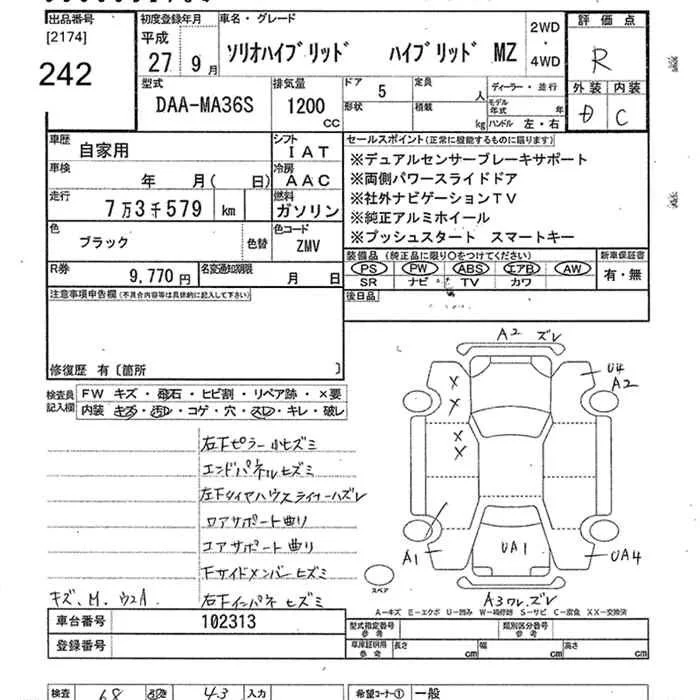 出品番号
[2174]
242
初度登録年月
平成
27 9月
車名・グレード
ソリオハイブリッド ハイブリッド MZ
2WD
・
4WD
評価点
R
外装 内装
C
型式
DAA-MA36S
排気量
1200
CC
ドア
5
定員
人
形状
積載
kg
ディーラー・並行
モデル年式
年
ハンドル 左・右
車歴
自家用
シフト
IAT
車検
年 月( 日)
冷房
AAC
走行
7万3千579 km
燃料
ガソリン
色
ブラック
色替
色コード
ZMV
R券
9,770円
名変通知期限
月 日
セールスポイント(正常に機能するものに限ります)
※デュアルセンサーブレーキサポート
※両側パワースライドドア
※社外ナビゲーションTV
※純正アルミホイール
※プッシュスタート スマートキー
装備品(純正品に限り○をつけてください)
PS PW ABS エアB AW
SR ナビ TV カワ
新車保証書
有・無
後日品
注意事項申告欄(不具合内容等は具体的に記入して下さい)
修復歴 有〔箇所 〕
検査員記入欄
FW キズ・飛石・ヒビ割・リペア跡・×要
内装 キズ・汚レ・コゲ・穴・スレ・キレ・破レ
右下ピラー小ヒズミ
エンドパネルヒズミ
左下タイヤハウスライナーハズレ
ロアサポート曲り
コアサポート曲り
下サイドメンバーヒズミ
右下インパネヒズミ
キズ、M、ウスA
A2 ズレ
U4
A2
X
X
X
X
A1
UA1
UA4
A3ワレ、ズレ
スペア
A-キズ E-エクボ U-凹み W-補修跡 S-サビ C-腐食 XX-交換済
車台番号
102313
登録番号
型式指定番号
参考
類別区分番号
参考
車庫証明用
参考
長さ
cm
幅
cm
高さ
cm
検査
68
43
入力
希望コーナー①
一般